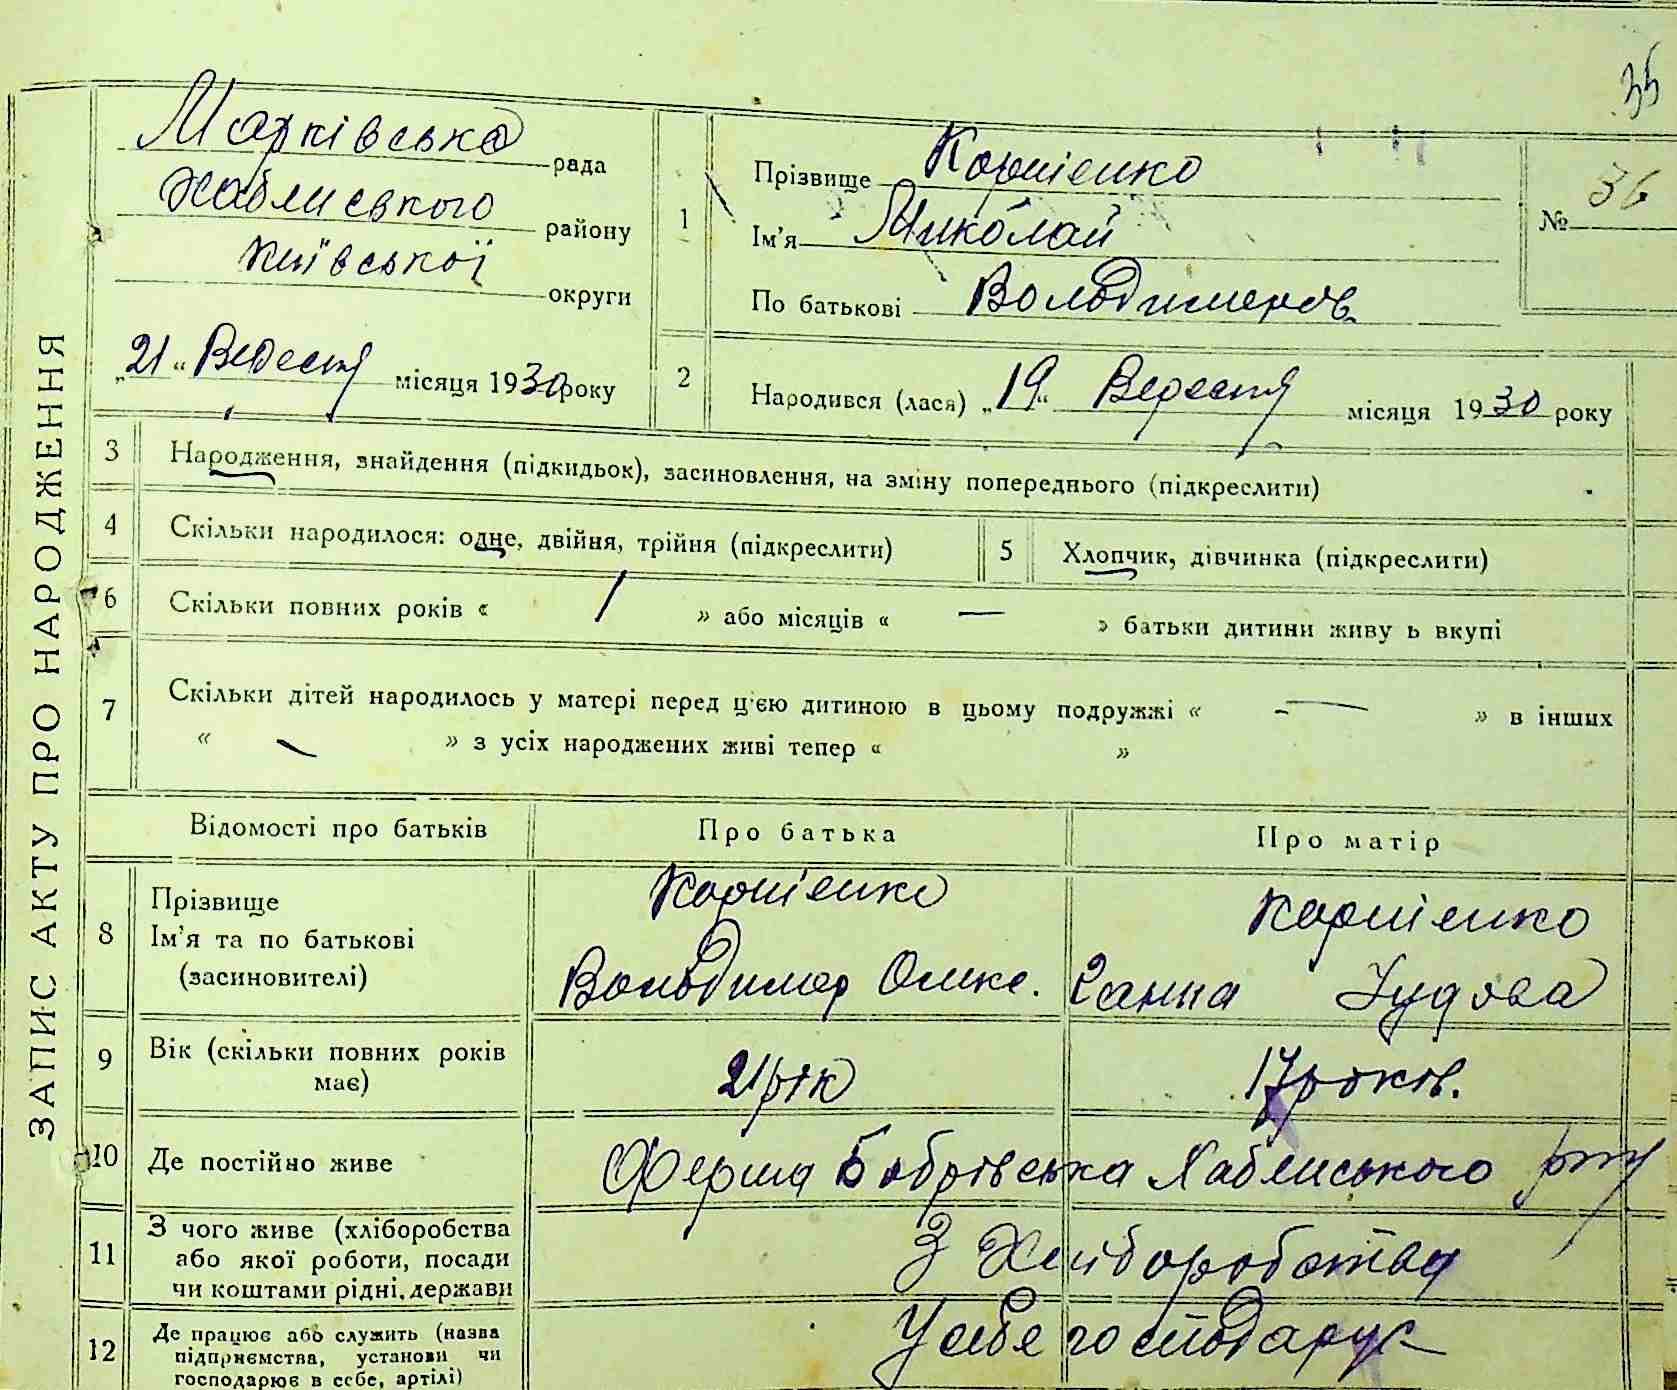 35
Марківська рада
Хабенського району
Київської округи
„21“ Вересня місяця 1930 року
1
Прізвище Корнієнко
Ім'я Миколай
По батькові Вольодимеров.
№ 36
2
Народився (лася) „19“ Вересня місяця 1930 року
ЗАПИС АКТУ ПРО НАРОДЖЕННЯ
3 Народження, знайдення (підкидьок), засиновлення, на зміну попереднього (підкреслити)
4 Скільки народилося: одне, двійня, трійня (підкреслити)
5 Хлопчик, дівчинка (підкреслити)
6 Скільки повних років « 1 » або місяців « — » батьки дитини живу ь вкупі
7 Скільки дітей народилось у матері перед ц'єю дитиною в цьому подружжі « — » в інших
« — » з усіх народжених живі тепер « »
Відомості про батьків Про батька Про матір
8 Прізвище
Ім'я та по батькові
(засиновителі)
Корнієнко
Вольодимер Олекс.
Корнієнко
Ганна
9 Вік (скільки повних років
має)
21 рік
17 років.
10 Де постійно живе
Ферма Бобрівська Хабенського р-ну
11 З чого живе (хліборобства
або якої роботи, посади
чи коштами рідні, держави
З Хліборобства
12 Де працює або служить (назва
підприємства, установи чи
господарює в себе, артілі)
У себе господарує